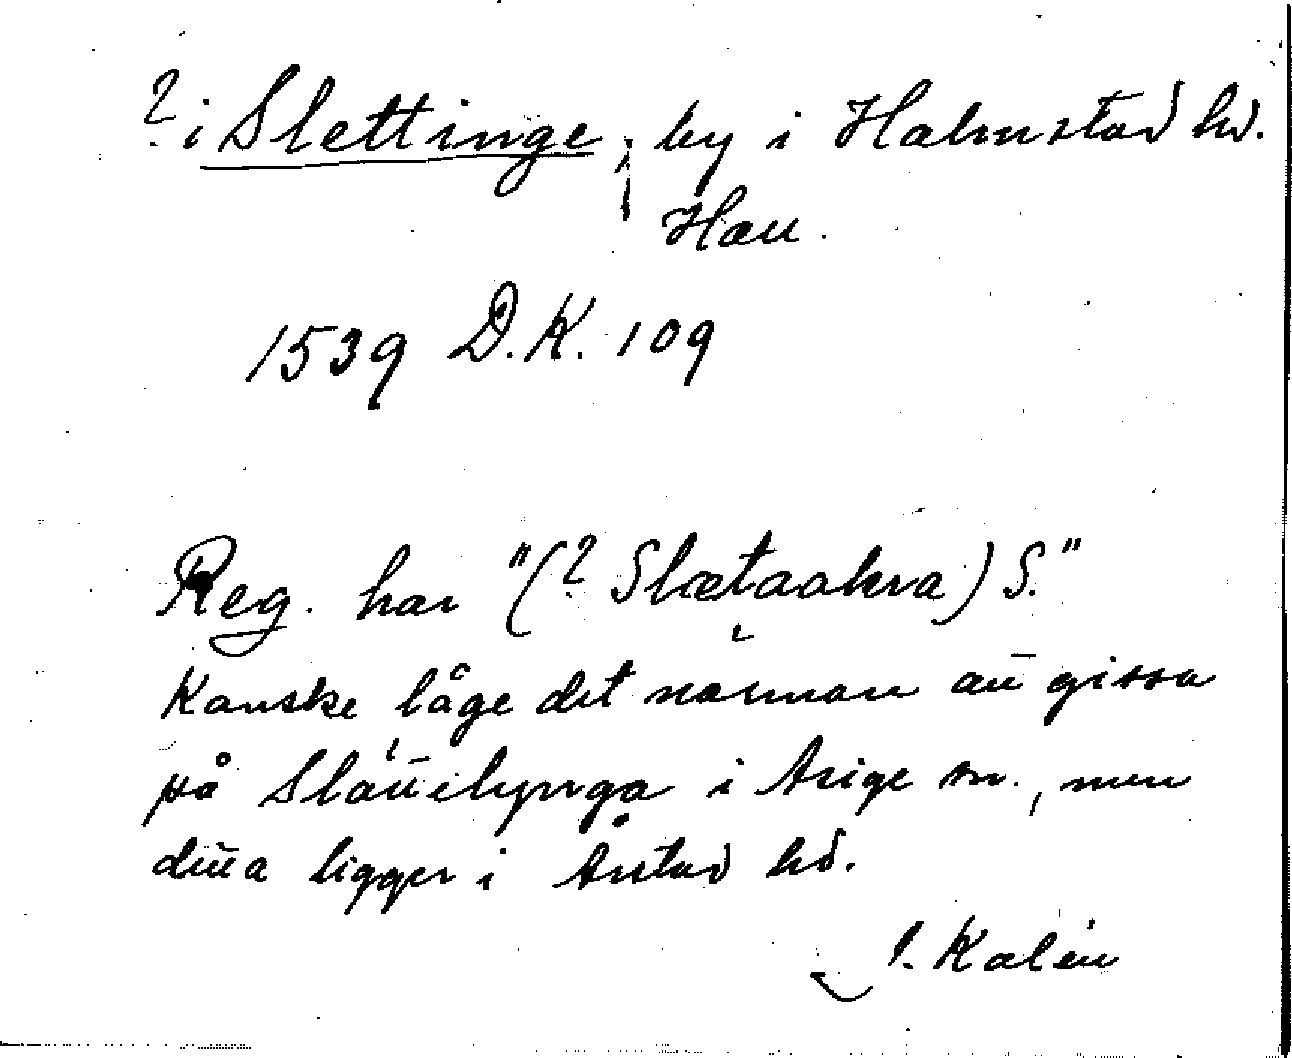 ? i Slettinge, by i Halmstad hd.
Hall.
1539 D.K. 109
Reg. har "(? Slætaakra) S."
Kanske låge det närmare att gissa
på Slättelynga i Årige sn., men
detta ligger i Årstad hd.
J. Kalén